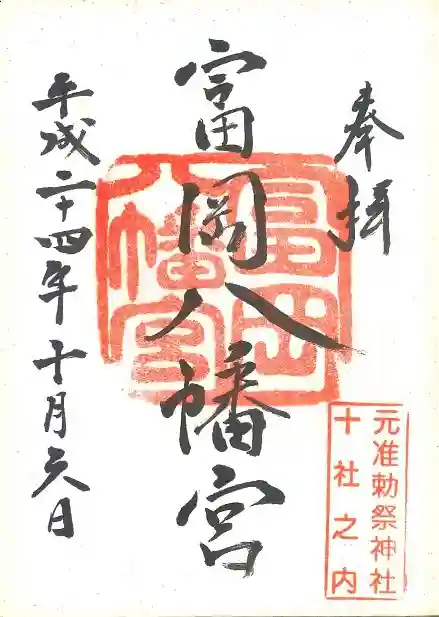 奉拝
富岡八幡宮
富岡八幡宮
元准勅祭神社
十社之内
平成二十四年十月六日